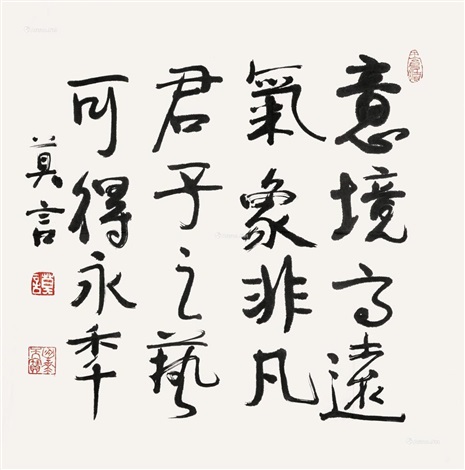 意境高遠
氣象非凡
君子之藝
可得永年
莫言